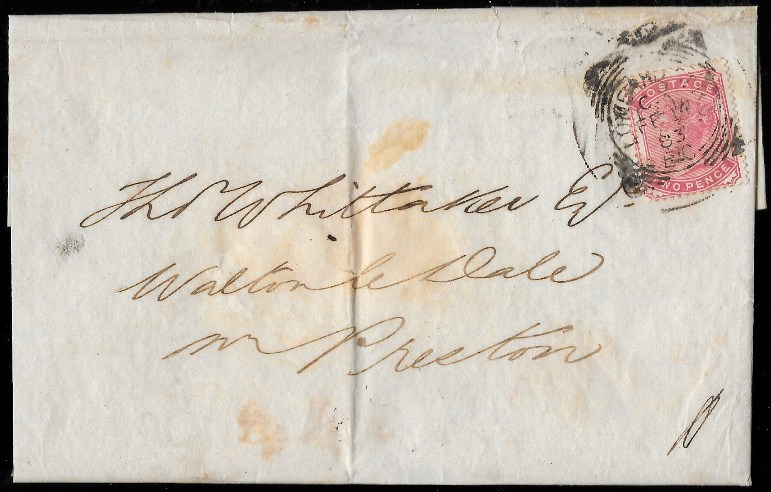 POSTAGE
TWO PENCE
LOMBARD
Thos Whittaker Esq.
Walton le Dale
nr Preston